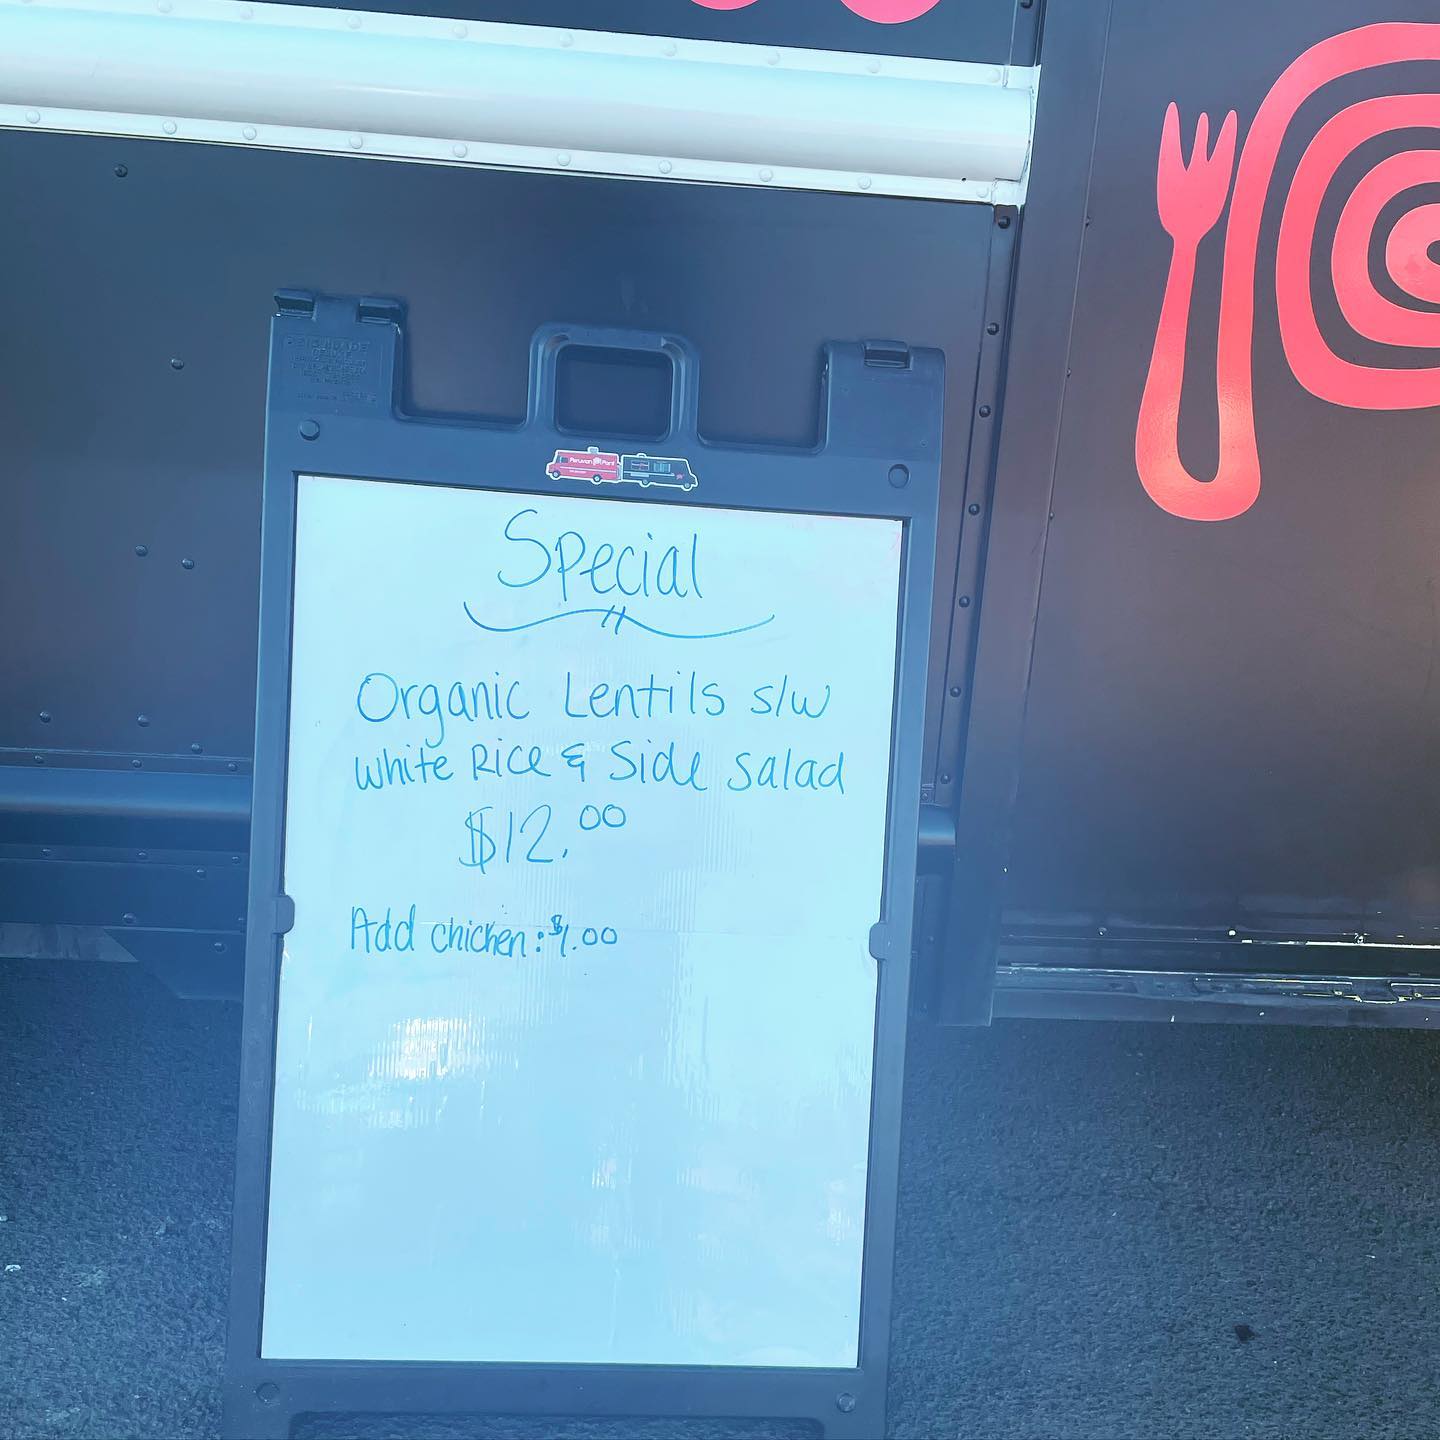 Peruvian Point
Special
Organic Lentils s/w
white Rice & Side Salad
$12.00
Add chicken: $1.00